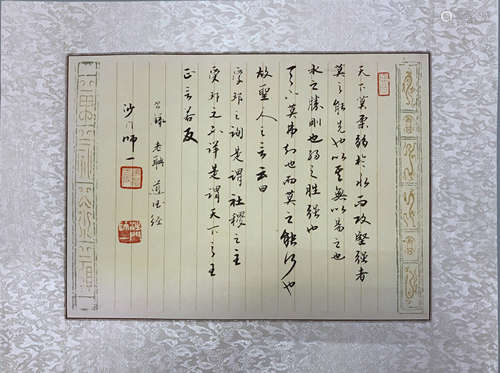 天下莫柔弱於水而攻堅强者
莫之能先也以其無以易之也
水之勝剛也弱之勝强也
天下莫弗知也而莫之能行也
故聖人之言云曰
受邦之訽是謂社稷之主
受邦之不祥是謂天下之王
正言若反
老聃 道德经
沙门师一